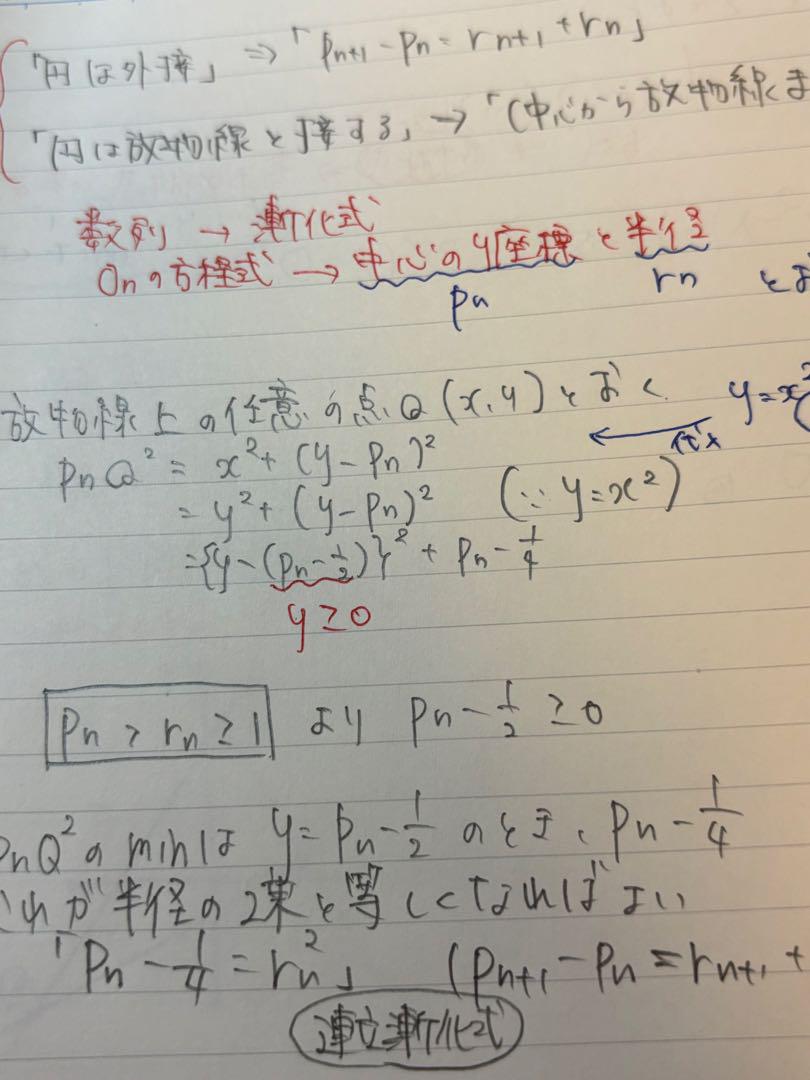 「円は外接」 ⇒ 「Pn+1 - Pn = rn+1 + rn」
「円は放物線と接する」 → 「(中心から放物線ま
数列 → 漸化式
Onの方程式 → 中心のy座標と半径
Pn rn とお
放物線上の任意の点Q(x,y)とおく y=x²
代入
PnQ² = x² + (y-Pn)²
= y² + (y-Pn)² (∵ y=x²)
={y-(Pn-1/2)}² + Pn - 1/4
y≧0
Pn > rn ≧ 1 より Pn - 1/2 ≧ 0
PnQ²のminは y = Pn - 1/2 のとき、Pn - 1/4
これが半径の2乗と等しくなればよい
「Pn - 1/4 = rn²」 (Pn+1 - Pn = rn+1 +
連立漸化式